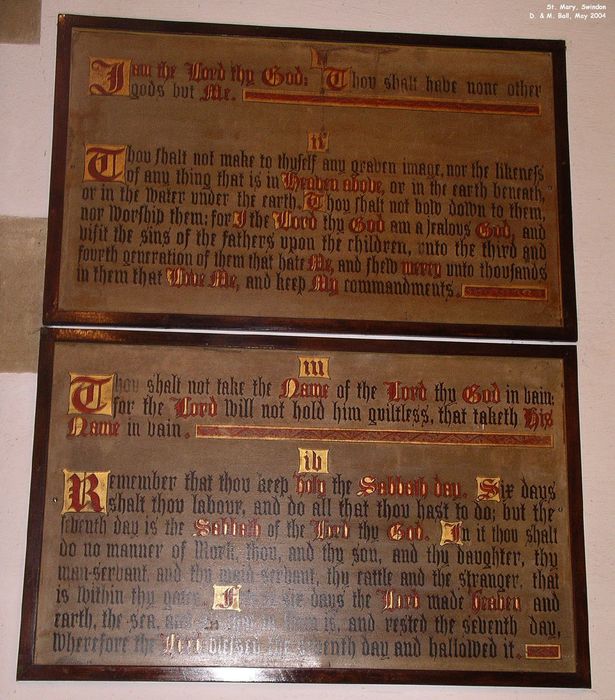 St. Mary, Swindon
D. & M. Ball, May 2004
i
I am the Lord thy God: Thou shalt have none other
gods but Me.
ii
Thou shalt not make to thyself any graven image, nor the likeness
of any thing that is in Heaven above, or in the earth beneath,
or in the water vnder the earth. Thou shalt not bow down to them,
nor worship them: for I the Lord thy God am a jealous God, and
visit the sins of the fathers vpon the children, vnto the third and
fourth generation of them that hate Me, and shew mercy vnto thousands
in them that Love Me, and keep My commandments.
iii
Thou shalt not take the Name of the Lord thy God in vain:
for the Lord will not hold him guiltless, that taketh His
Name in vain.
iv
Remember that thou keep holy the Sabbath day. Six days
shalt thou labour, and do all that thou hast to do; but the
seventh day is the Sabbath of the Lord thy God. In it thou shalt
do no manner of work, thou, and thy son, and thy daughter, thy
man-servant, and thy maid-servant, thy cattle and the stranger, that
is within thy gates. six days the Lord made heaven and
earth, the sea, and is, and rested the seventh day,
wherefore the Lord blessed the seventh day and hallowed it.